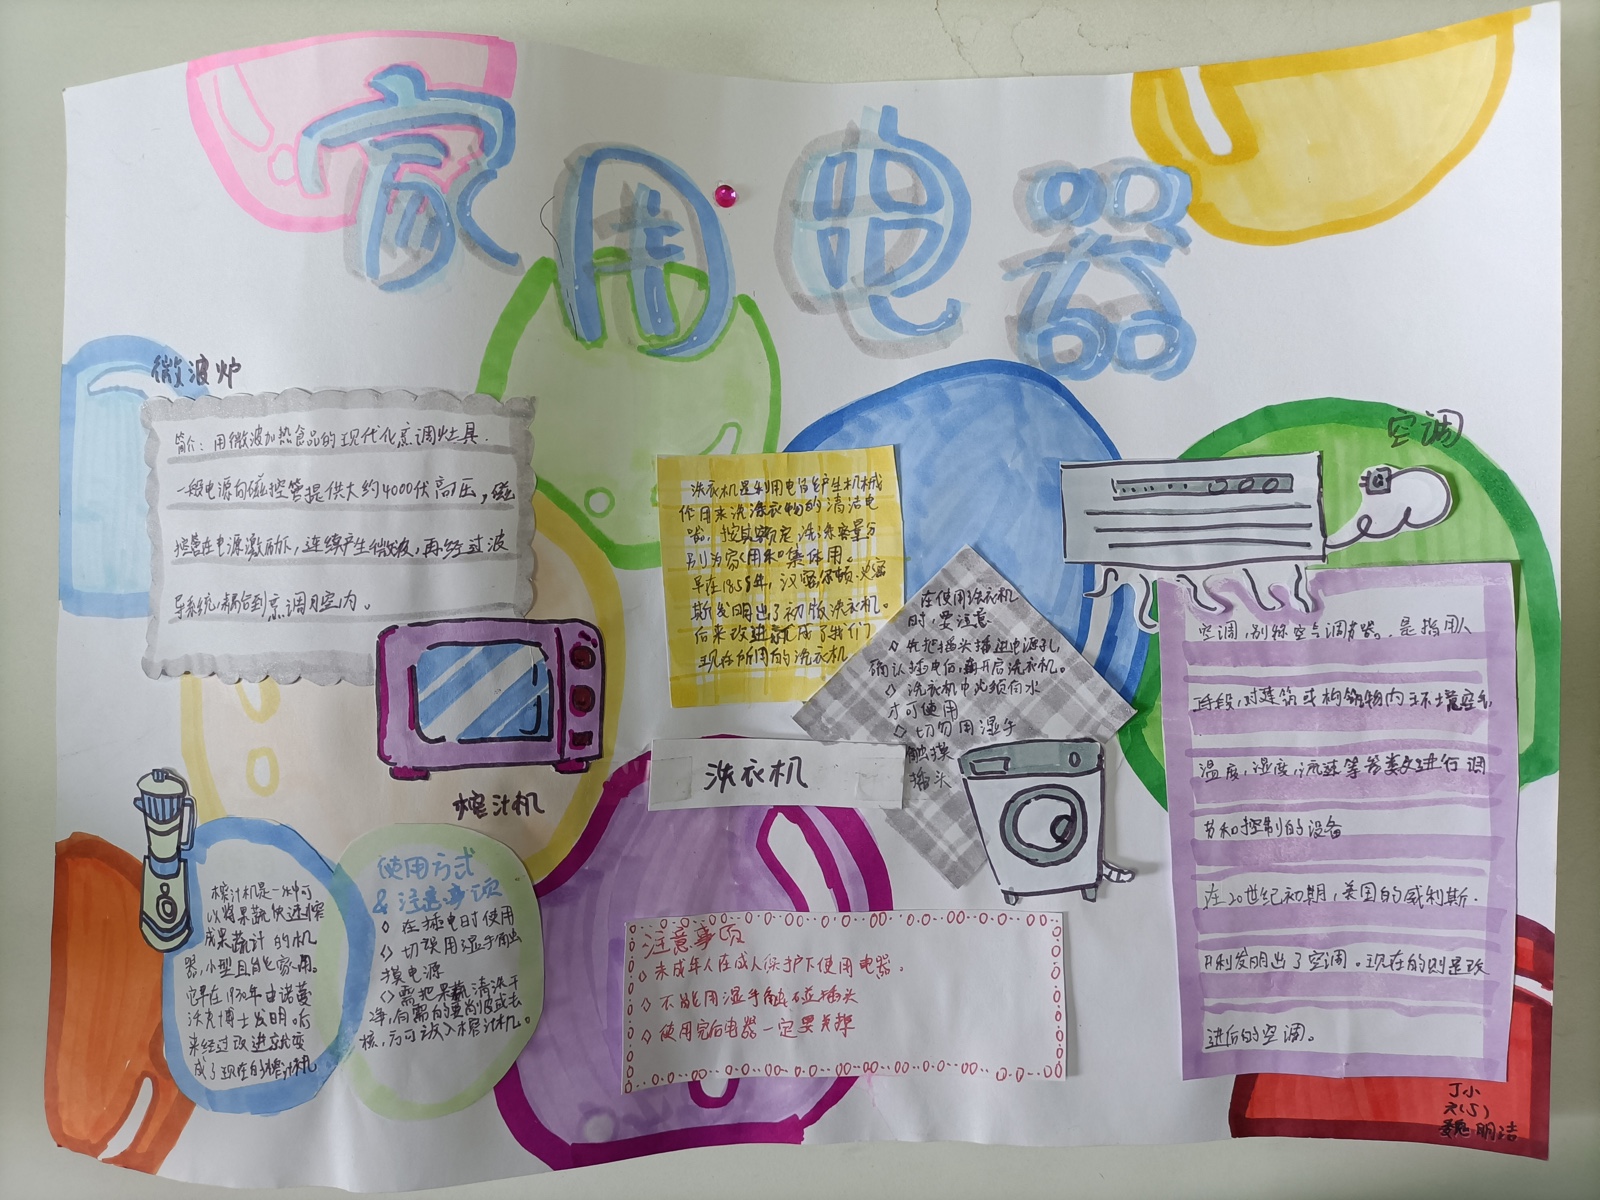 家用电器
微波炉
简介：用微波加热食品的现代化烹调灶具.
一般电源向磁控管提供大约4000伏高压，磁
控管在电源激励下，连续产生微波，再经过波
导系统，耦合到烹调腔内。
洗衣机是利用电能产生机械
作用来洗涤衣物的清洁电
器，按其额定洗涤容量分
别为家用和集体用。
早在1858年，汉密尔顿·史密
斯发明出了初版洗衣机。
后来改进就成了我们
现在所用的洗衣机
在使用洗衣机
时，要注意
◇先把插头插进电源孔，
确认插电后，再开启洗衣机。
◇洗衣机中必须有水
才可使用
◇切勿用湿手
触摸
插头
洗衣机
空调
空调，别称空气调节器。是指用人
手段，对建筑或构筑物内环境空气
温度，湿度，流速等参数进行调
节和控制的设备
在20世纪初期，美国的威利斯·
开利发明出了空调。现在的则是改
进后的空调。
榨汁机
榨汁机是一种可
以将果蔬快速榨
成果蔬汁的机
器，小型且能家用。
它早在1930年由诺蔓
沃克博士发明。后
来经过改进就变
成了现在的榨汁机
使用方式
&注意事项
◇在插电时使用
◇切误用湿手触
摸电源
◇需把果蔬清洗干
净，有需的要削皮或去
核，后可放入榨汁机。
注意事项
◇未成年人在成人保护下使用电器。
◇不能用湿手触碰插头
◇使用完后电器一定要关掉
丁小
六(5)
魏明洁